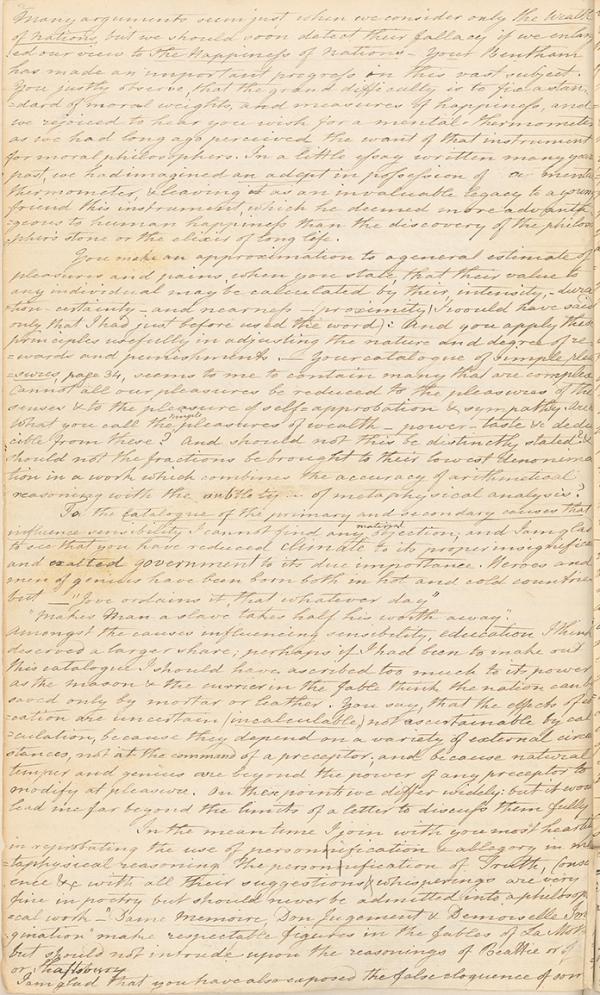 Many arguments seem just when we consider only the Wealth
of Nations but we should soon detect their fallacy if we enlar
ed our view to the Happiness of Nations – Your Bentham
has made an important progress in this vast subject.
You justly observe, that the grand difficulty is to fix a stan
=dard of moral weights, and measures of happiness, and
we rejoiced to hear you wish for a mental-thermometer
as we had long ago perceived the want of that instrument
for moral philosophers. In a little essay written many year
past, we had imagined an adept in possession of a menta
thermometer, & leaving it as an invaluable legacy to a youn
friend this instrument which he deemed more advanta
geous to human happiness than the discovery of the philos
opher's stone or the elixir of long life.
You make an approximation to a general estimate of
pleasures and pains, when you state, that their value to
any individual may be calculated by their intensity, – dura
tion – certainty – and nearness – proximity (I would have said
only that I had just before used the word): And you apply these
principles usefully in adjusting the nature and degree of re
=wards and punishments. – Your catalogue of simple plea
=sures, page 34, seems to me to contain many that are complex
Cannot all our pleasures be reduced to the pleasures of the
senses & to the pleasure of self=approbation & sympathy. Are
what you call the simple pleasures of wealth – power – taste &c dedu
cible from these? And should not this be distinctly stated? &
should not the fractions be brought to their lowest denomina
tion in a work which combines the accuracy of arithmetical
reasoning with the subtlety of metaphysical analysis?
To the catalogue of the primary and secondary causes that
influence sensibility I cannot find any material objection; and I am glad
to see that you have reduced climate to its proper insignifica
and exalted government to its due importance. Heroes and
men of genius have been born both in hot and cold countries
but – "Jove ordains it, that whatever day"
"makes Man a slave takes half his worth away"
Amongst the causes influencing sensibility, education I think
deserved a larger share; perhaps if I had been to make out
this catalogue I should have ascribed too much to its power
as the mason & the currier in the fable think the nation can b
saved only by mortar or leather. You say, that the effects of ed
=cation are uncertain (incalculable) not ascertainable by cal
=culation, because they depend on a variety of external circu
stances, not at the command of a preceptor, and because natural
temper and genius are beyond the power of any preceptor to
modify at pleasure. On these points we differ widely: but it wou
lead me far beyond the limits of a letter to discuss them fully
In the mean time I join with you most heartil
in reprobating the use of personification & allegory in me
taphysical reasoning the personification of Truth, Consc
ence &c with all their suggestions & whisperings are very
fine in poetry but should never be admitted into a philosop
=cal work – Dame Memoire, Don Jugement & Demoiselle Ima
gination" make respectable figures in the fables of La Motte
but should not intrude upon the reasonings of Beattie or of
or Shaftsbury
I am glad that you have also exposed the false eloquence of som